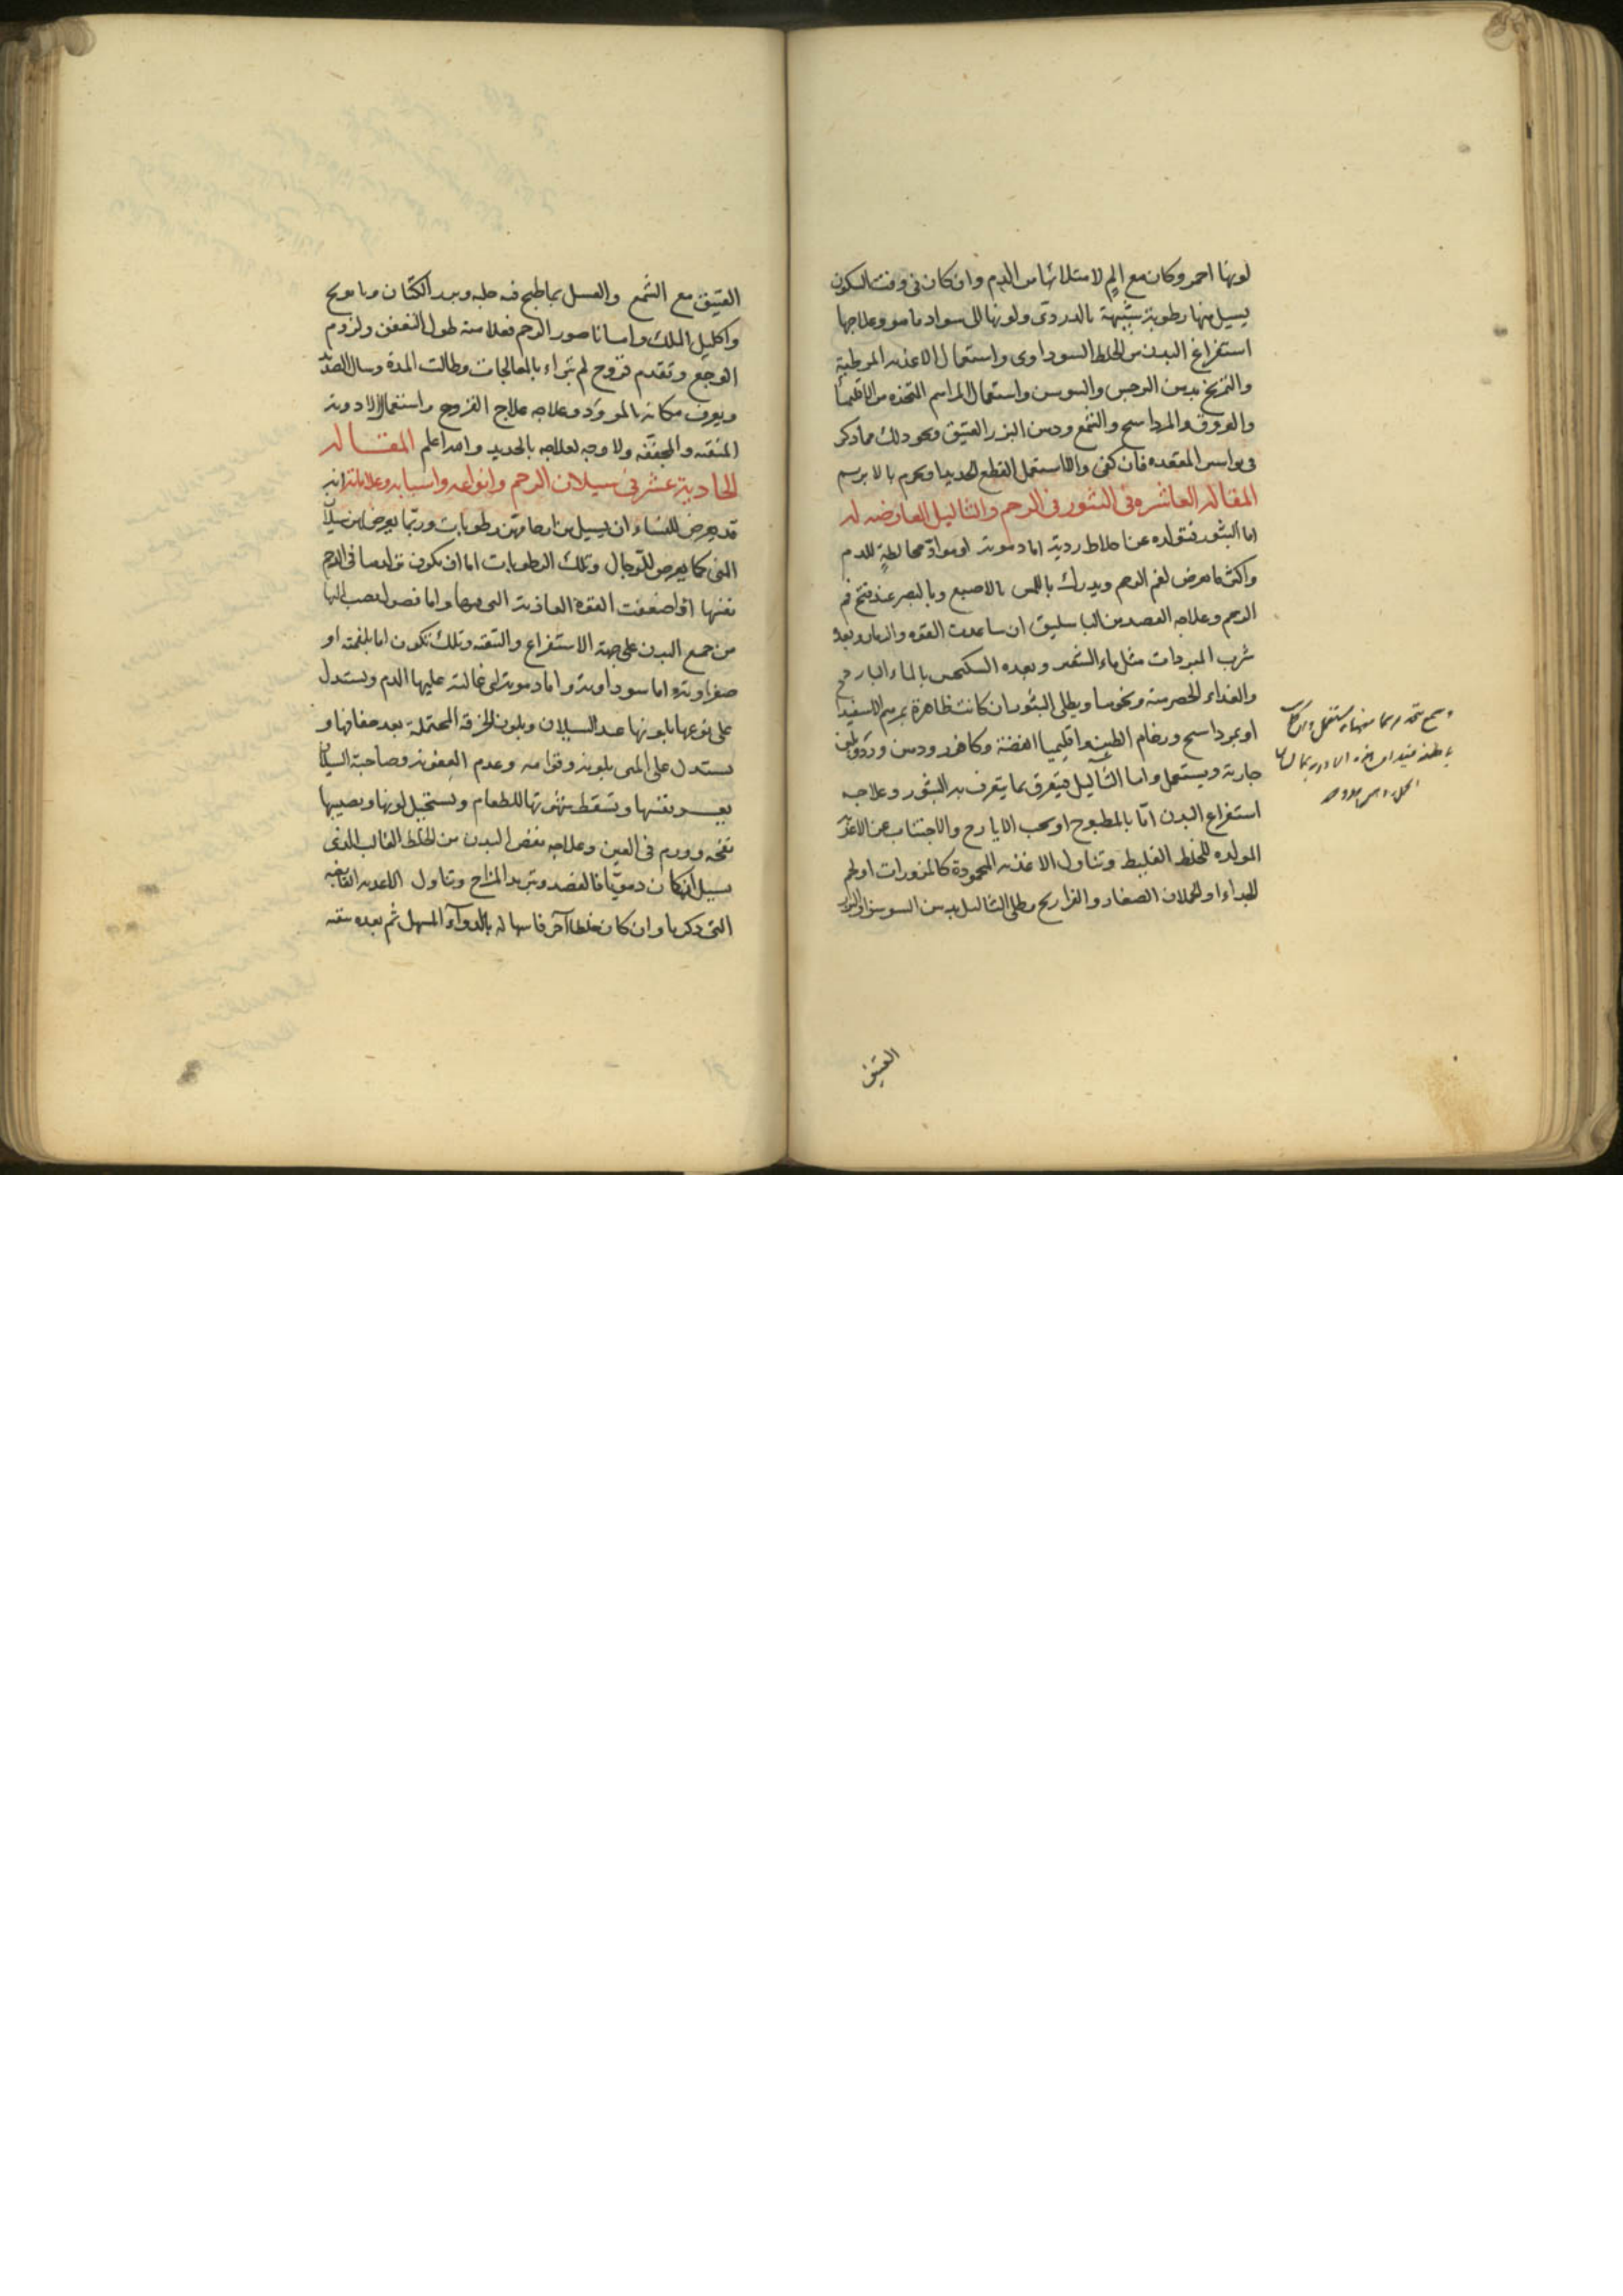 لونها احمر وكان مع الم لامتلائها من الدم وان كان فى وقت السكون
يسيل منها رطوبة شبيهة بالدردى ولونها الى سواد ما هو وعلاجها
استفراغ البدن من الخلط السوداوى واستعمال الاغذيه المرطبة
والتمريخ بدهن النرجس والسوسن واستعمال المراهم المتخذه من الاقليميا
والعروق والمرداسنج والشمع ودهن البزر العتيق ونحو ذلك مما ذكر
فى بواسير المقعده فان كفى والا استعمل القطع بالحديد
المقاله العاشره فى البثور فى الرحم والثاليل العارضه له
اما البثور فتولده عن اخلاط ردية اما دموية او مواد مخالطة للدم
واكثر ما يعرض لفم الرحم ويدرك باللمس بالاصبع وبالبصر عند فتح فم
الرحم وعلاجه الفصد من الباسليق ان ساعدت القوه والزمان وبعده
شرب المبردات مثل ماء الشعير وبعده السكنجبين بالماء البارد
والغذاء الحصرمية ونحوها ويطلى البثور ان كانت ظاهرة بمرهم الاسفيداج
او بمرداسنج ورخام الطين واقليميا الفضة وكافور ودهن ورد ولبن
جارية ويستعمل واما الثاليل فيتعرف بما يتعرف به البثور وعلاجه
استفراغ البدن اما بالمطبوخ او بحب الايارج والاجتناب عن الاغذيه
المولده للخلط الغليظ وتناول الاغذيه المحمودة كالمزورات او لحم
الجداء او الحملان الصغار والفراريج وطلى الثاليل بدهن السوسن
العتيق
العتيق مع الشمع والغسل بما طبخ فيه حلبه وبزر الكتان وبابونج
واكليل الملك واما ناصور الرحم فعلامته طول التعفن ولزوم
الوجع وتقدم قروح لم تبراء بالمعالجات وطالت المدة وسال الصديد
ويعرف مكانه بالمرود وعلاجه علاج القروح واستعمال الادويه
المنقيه والمجففه ولا وجه لعلاجه بالحديد والله اعلم المقاله
الحادية عشر فى سيلان الرحم وانواعه واسبابه وعلاماته انه
قد يعرض للنساء ان يسيل من ارحامهن رطوبات وربما يعرض لهن سيلان
المنى كما يعرض للرجال وتلك الرطوبات اما ان يكون تولدها فى الرحم
نفسها اذا ضعفت القوة الغاذية التى فيها واما فضول تنصب اليها
من جميع البدن على جهة الاستفراغ والتنقيه وتلك تكون اما بلغميه او
صفراوية اما سوداوية واما دموية التى غالبة عليها الدم ويستدل
على نوعها بلونها عند السيلان وبلون الخرقه المحتملة بعد جفافها و
يستدل على المنى بلونه وقوامه وعدم العفونه وصاحبة السيلان
يعسر نفسها وتسقط شهوتها للطعام ويستحيل لونها ويصيبها
نفخه وورم فى العين وعلاجه نفض البدن من الخلط الغالب الذى
يسيل ان كان دمويا فالفصد وتبريد المزاج وتناول الاغذيه القابضه
التى ذكرنا وان كان خلطا آخر فاسهاله بالدوآء المسهل ثم بعده تنقيه